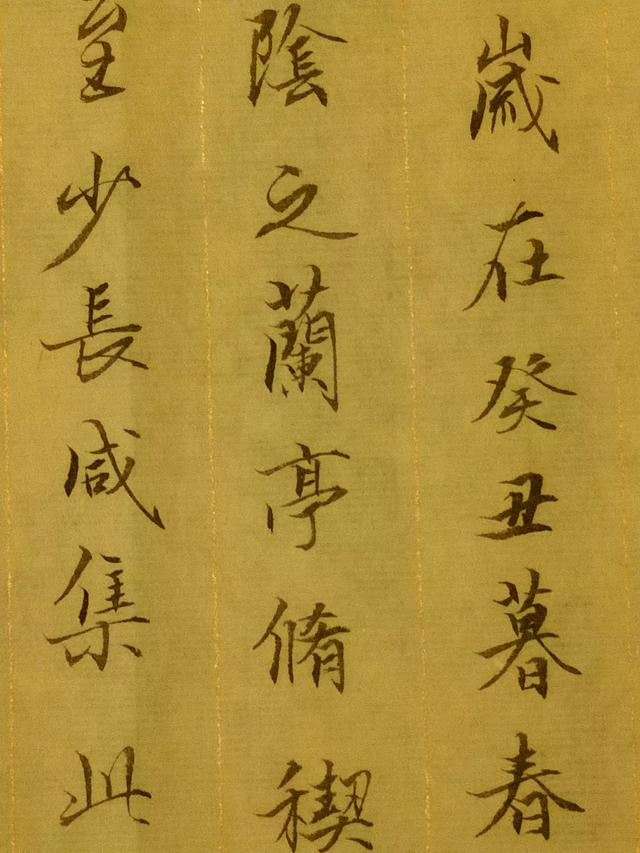 歲在癸丑暮春
陰之蘭亭脩稧
至少長咸集此